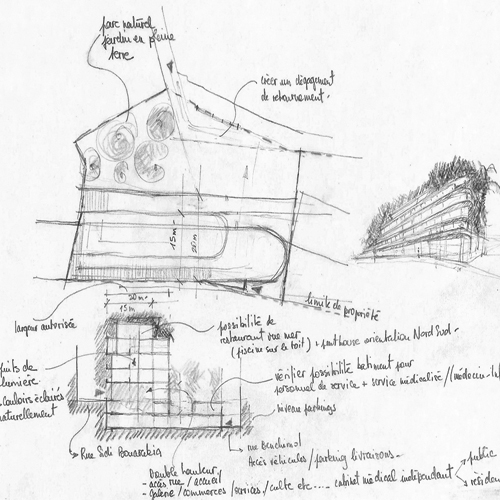 parc naturel
jardin en pleine
terre
créer un dégagement
de retournement.
15m
20m
limite de propriété
20m
15m
largeur autorisée
possibilité de
restaurant vue mer
(piscine sur le toit) + penthouse orientation Nord Sud.
puits de
lumière
couloirs éclairés
naturellement
vérifier possibilité batiment pour
personnel de service + service médicalisé / (médecin-
niveau parkings
Rue Sidi Bouarrakia
rue Benchimol
Accès véhicules / parking livraisons.
Double hauteur
- accès rue / accueil
- galerie / commerces / services / culte etc.... cabinet médical indépendant
public